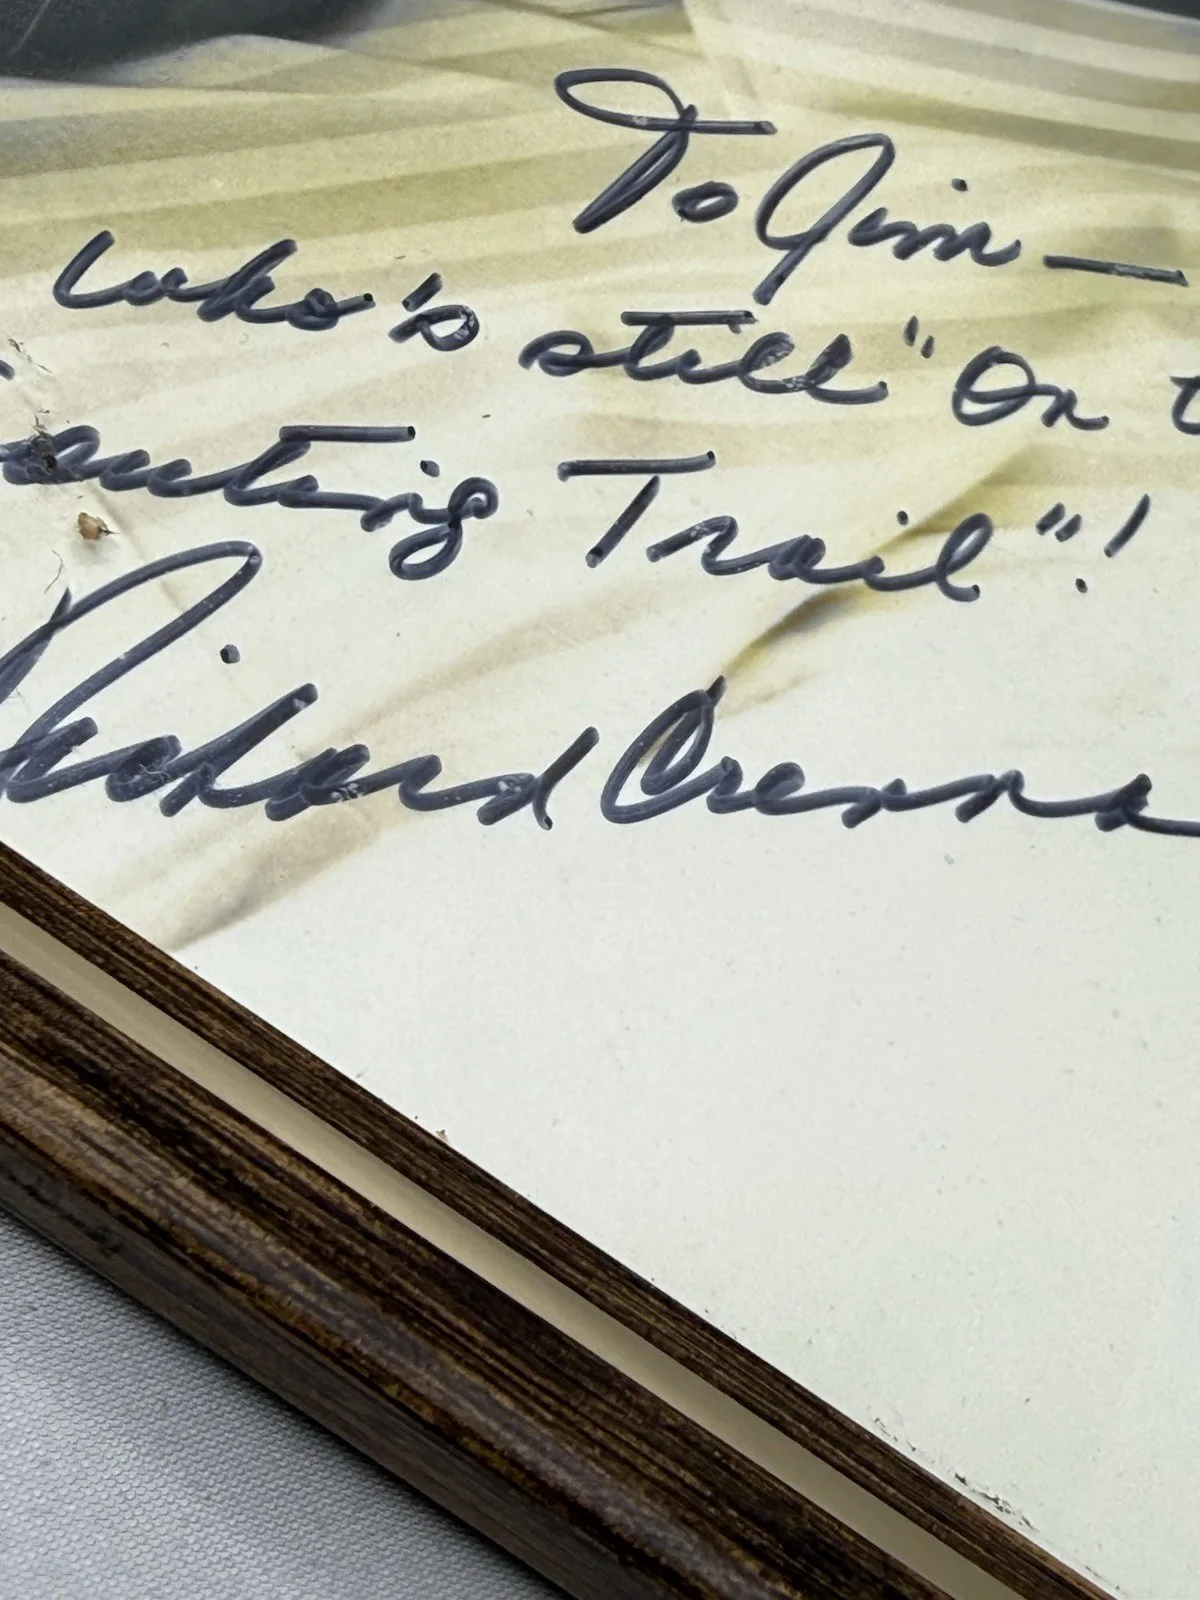 To Jim —
Who's still "On t
Trail"!
Richard Crenna